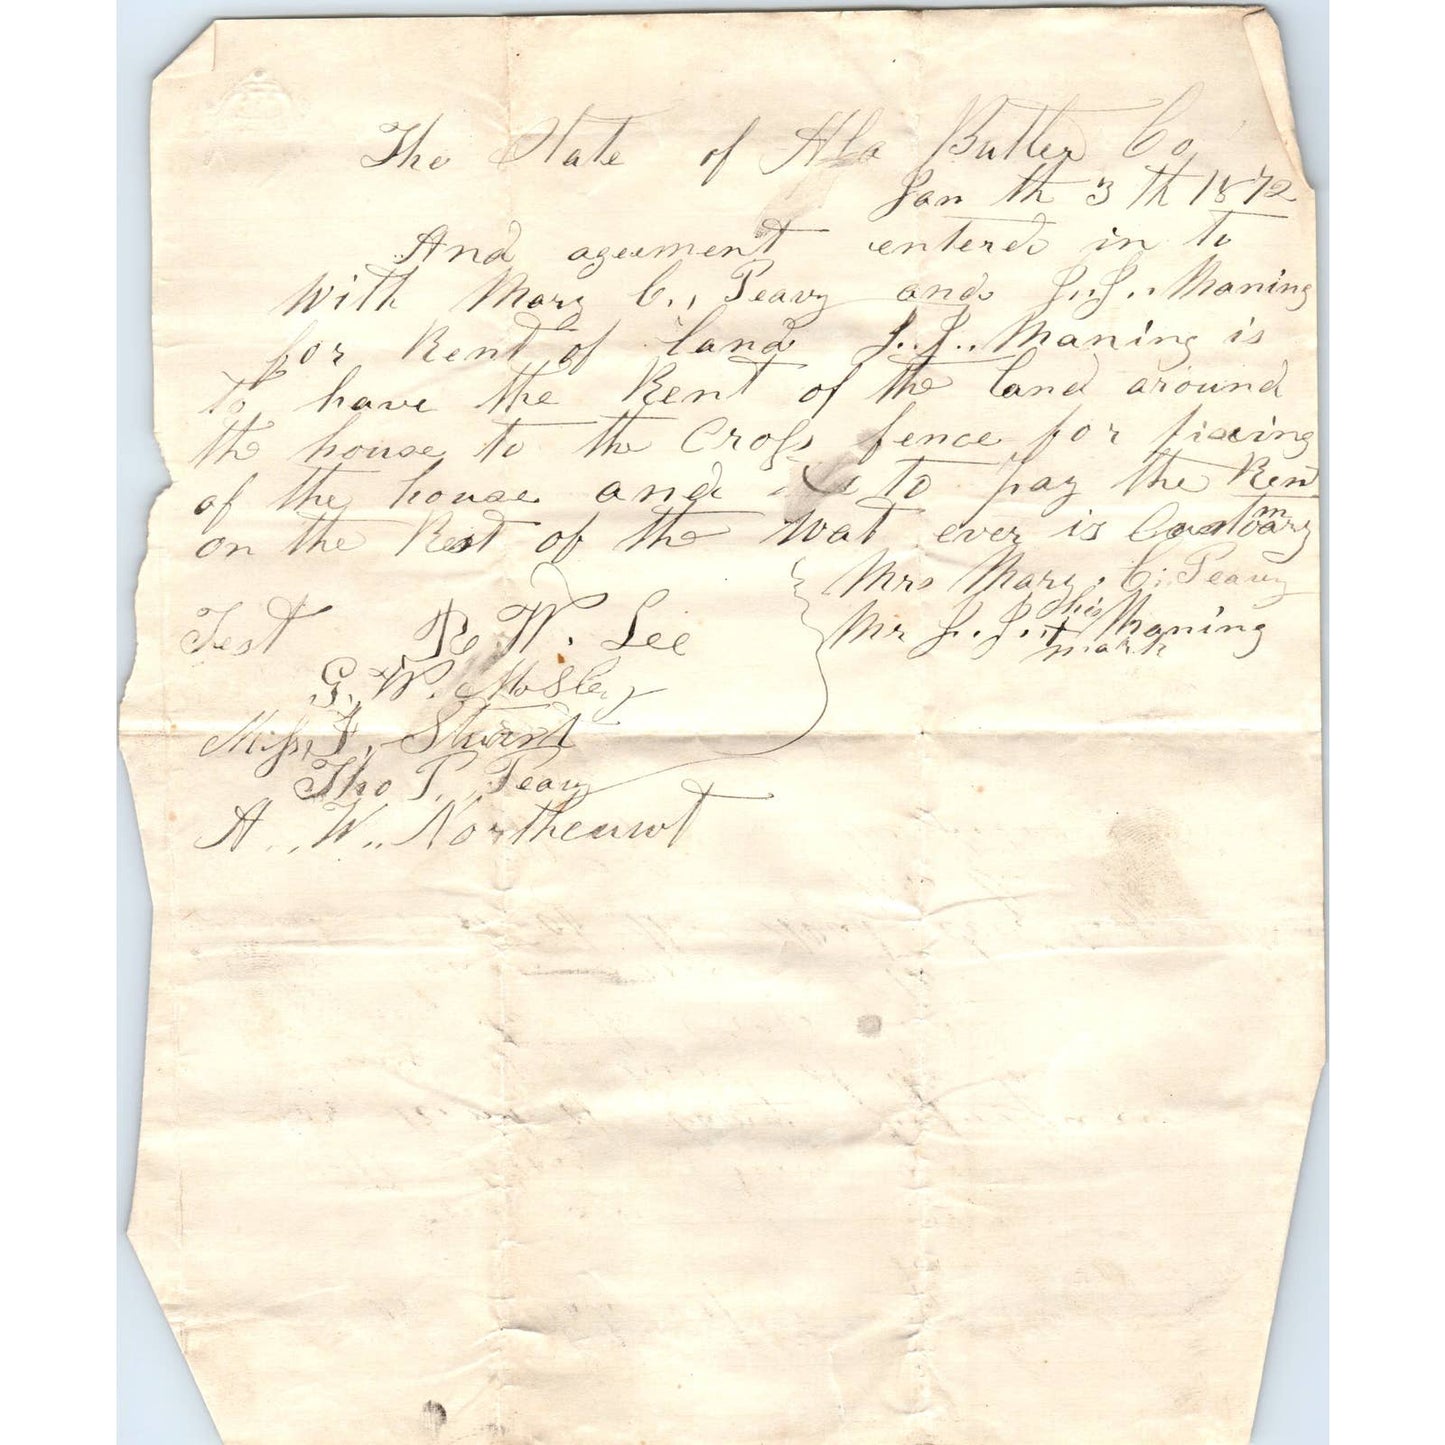 The State of Ala Butler Co
Jan th 3 th 1872
And ageement entered in to
With Mary C., Peavy and J.. J.. Maning
for Rent of land J.. J.. Maning is
to have the Rent of the land around
the house to the Cross fence for fixing
of the house and is to pay the Rent
on the Rest of the wat ever is Customary
Mrs Mary C. Peavy
Mr J. J.. his x mark Maning
Test R W. Lee
G. W. Mosley
Miss, F. Stuart
Tho P. Peavy
A.. W..